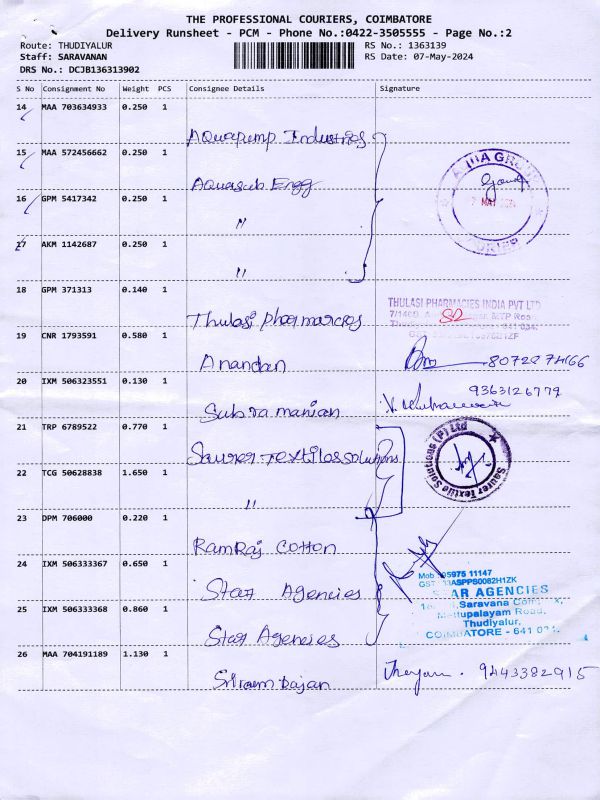 THE PROFESSIONAL COURIERS, COIMBATORE
Delivery Runsheet - PCM - Phone No.:0422-3505555 - Page No.:2
Route: THUDIYALUR RS No.: 1363139
Staff: SARAVANAN RS Date: 07-May-2024
DRS No.: DCJB136313902
S No Consignment No Weight PCS Consignee Details Signature
14 MAA 703634933 0.250 1
Aquapump Industries
15 MAA 572456662 0.250 1
Aquasub Engg
16 GPM 5417342 0.250 1
"
17 AKM 1142687 0.250 1
"
18 GPM 371313 0.140 1
Thulasi pharmacies
THULASI PHARMACIES INDIA PVT LTD
19 CNR 1793591 0.580 1
Anandan
20 IXM 506323551 0.130 1
9363126779
Subramanian
21 TRP 6789522 0.770 1
Saurer Textiles solutions
Saurer Textile Solutions (P) Ltd
22 TCG 50628838 1.650 1
"
23 DPM 706000 0.220 1
RamRaj Cotton
24 IXM 506333367 0.650 1
Star Agencies
AR AGENCIES
Mettupalayam Road,
Thudiyalur,
COIMBATORE - 641 034.
25 IXM 506333368 0.860 1
Star Agencies
26 MAA 704191189 1.130 1
9443382915